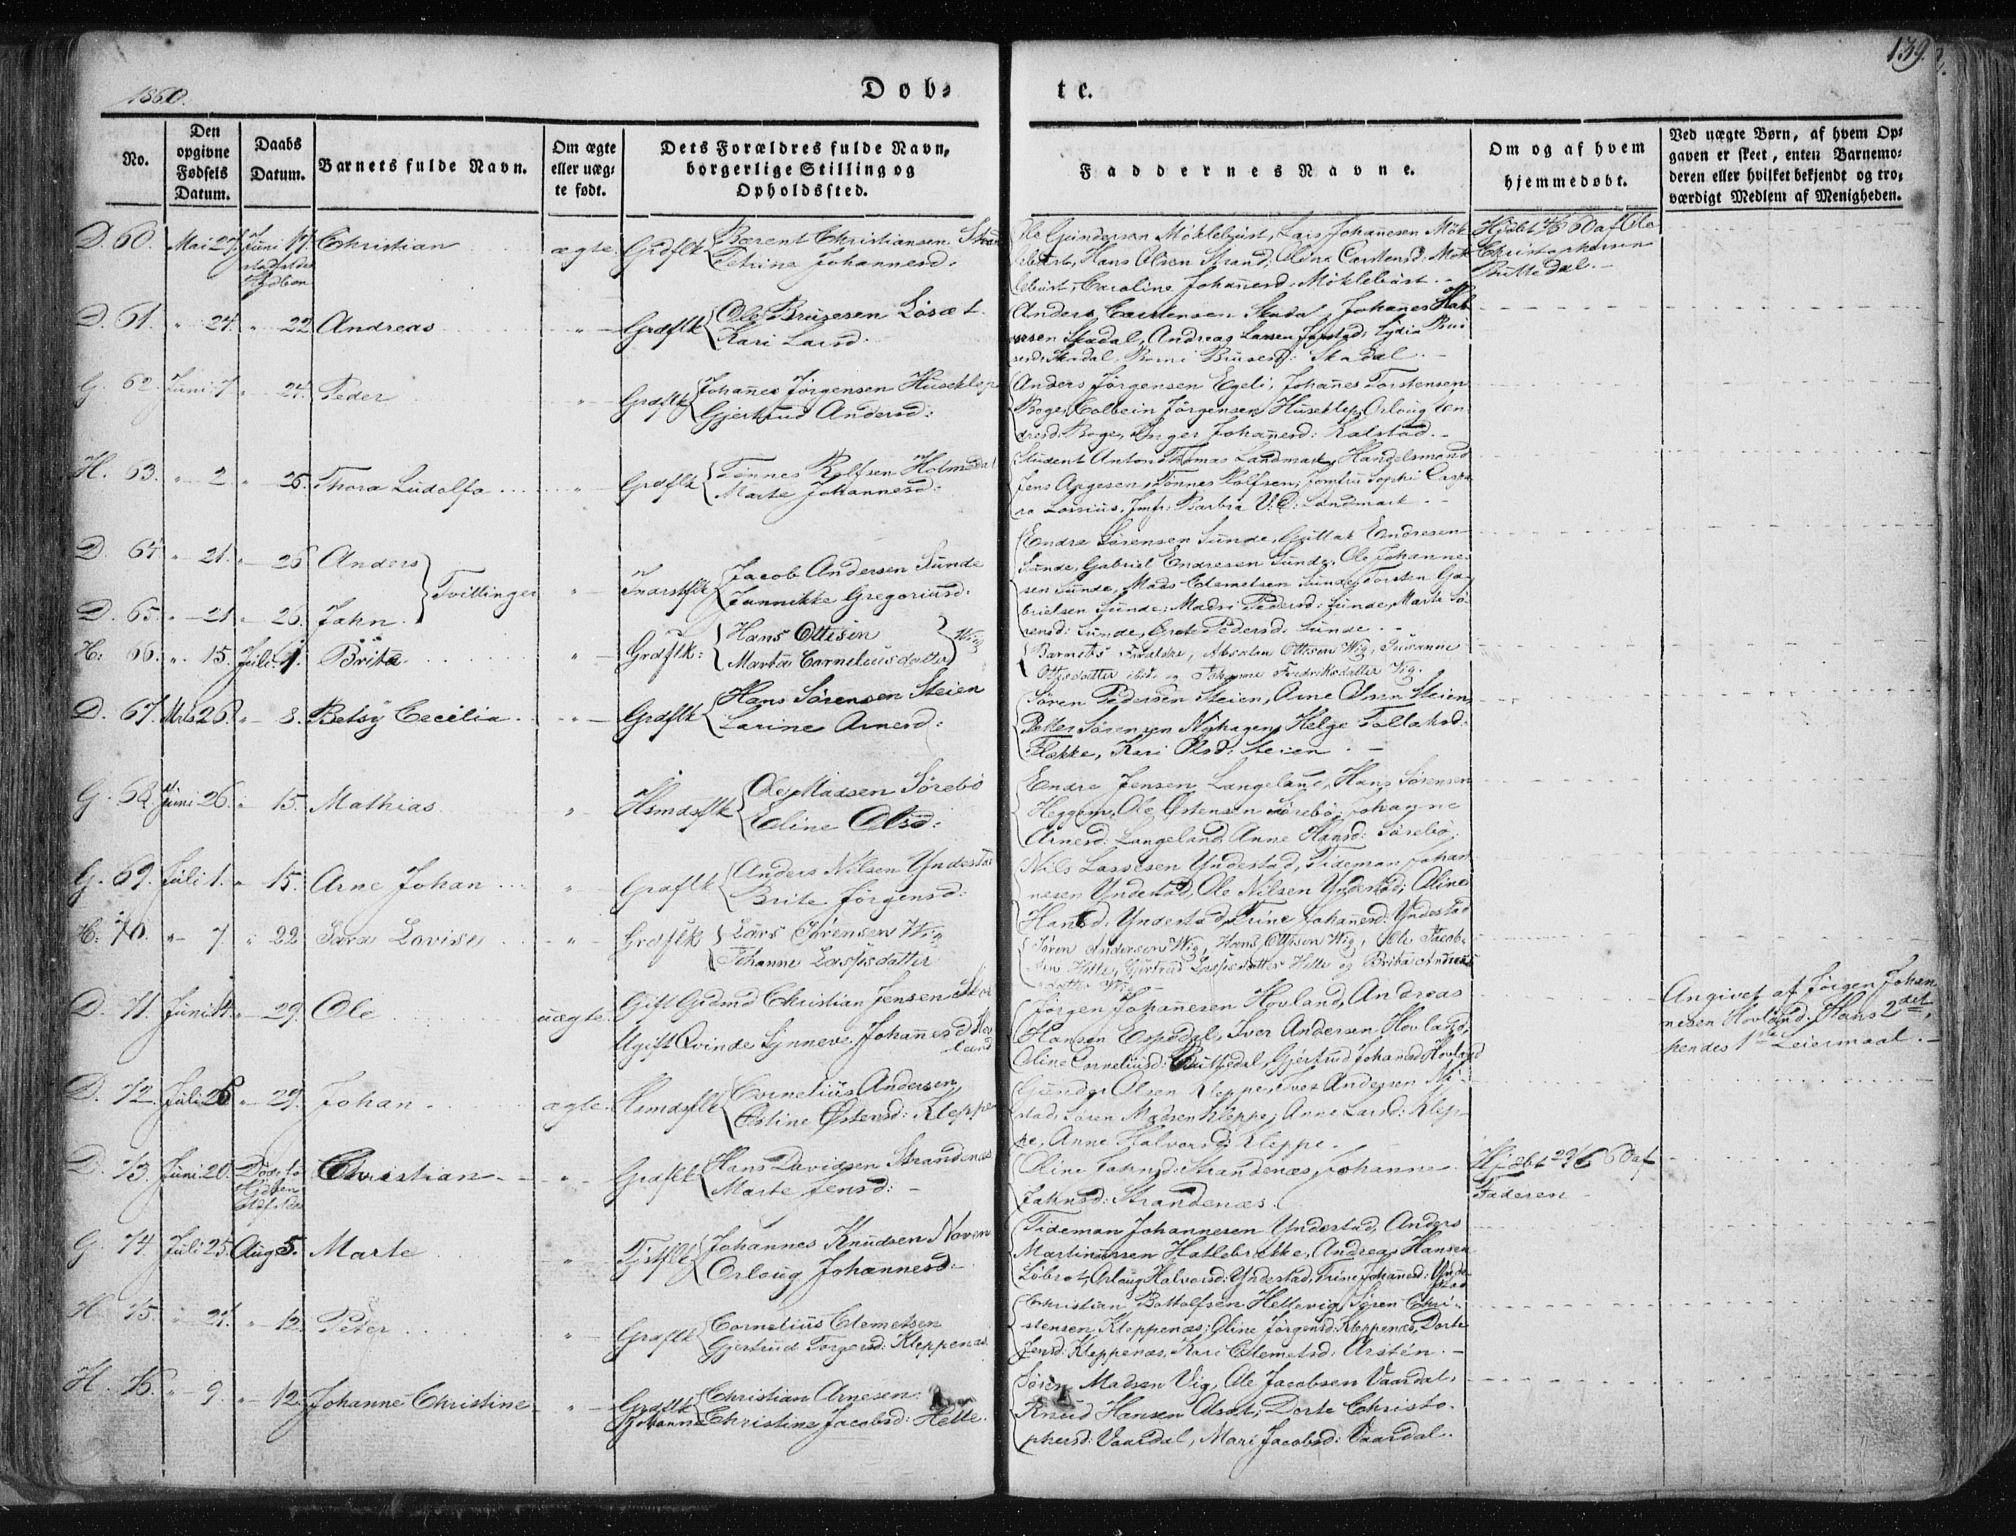 1860.
Døb-
te.
139.
No.
Den opgivne Fødsels Datum.
Daabs Datum.
Barnets fulde Navn.
Om ægte eller uæg-te født.
Dets Forældres fulde Navn, borgerlige Stilling og Opholdssted.
Faddernes Navne.
Om og af hvem hjemmedøbt.
Ved uægte Børn, af hvem Op-gaven er skeet, enten Barnemo-deren eller hvilket bekjendt og tro-værdigt Medlem af Menigheden.
D. 60. Mai 27. Juni 17. Christian ægte. Grdflk Bærent Christiansen
Petrine Johannesd:
Ole Gundersen Møklebust, Lars Johannesen Møk
lebust, Hans Olsen Strand, Oline Carstensd: Møk
lebust, Caroline Johannesd: Møklebust.
af Ole
Christophersen
D. 61. " 24. " 22. Andreas " Grdflk Ole Brusesen Løsæt
Kari Larsd:
Anders Carstensen Skadal, Johanes
Skadal, Andreas Larsen Lydia Bru
sesd: Skadal, Brusesd: Skadal.
G. 62. Juni 7. " 24. Peder " Grdflk Johanes Jørgensen Huseklep
Gjertrud Andersd:
Anders Jørgensen Egeli, Johanes Torstensen
Boge, Colbein Jørgensen Huseklep, Orloug An
dresd: Boge, Inger Johanesd: Kalstad.
H. 63. " 2. " 25. Thora Ludolfa " Grdflk Tønnes Rolfsen Holmedal
Marte Johannesd:
Student Anton Thomas Landmark, Handelsmand
Jens Aagesen, Tønnes Rolfsen, Jomfru Sophi Caspa
ra Lossius, Jmfr: Barbra V. D: Landmark
D. 64. " 21. " 26. Anders
Tvillinger
D. 65. " 21. " 26. Jahn.
Indrstflk Jacob Andersen Sunde
Jannikke Gregoriusd:
Endre Sørensen Sunde, Guttar Endresen
Sunde, Gabriel Endresen Sunde, Ole Johanne
sen Sunde, Mads Clemetsen Sunde, Torsten Ga
brielsen Sunde, Madri Pedersd: Sunde, Marte Sø
rensd: Sunde, Grete Pedersd: Sunde
H: 66. " 15. Juli 1. Brita " Grdflk: Hans Ottesen
Marta Corneliusdatter Wig
Barnets Forældre, Absalon Ottesen Wig, Susanne
Ottesdatter ibid: og Johanne Fredriksdatter Wig.
D. 67. Mrts 26. " 8. Betsy Cecilia " Grdflk Hans Sørensen Steien
Larine Arnesd:
Søren Pedersen Steien, Arne Olsen Steien,
Petter Sørensen Nyhagen, Helge Tollaksd:
Flekke, Kari Olsd: Steien
G. 68. Juni 26. " 15. Mathias " Hsmdsflk Ole Madsen Sørebø
Eline Olsd:
Endre Jensen Langeland, Hans Sørensen
Heggem, Ole Østensen Sørebø, Johanne
Arnesd: Langeland, Anne Hansd: Sørebø.
G. 69. Juli 1. " 15. Arne Johan " Grdflk Anders Nilsen Yndestad
Brite Jørgensd:
Nils Lassesen Yndestad, Tideman Johan
nesen Yndestad, Ole Nilsen Yndestad, Oline
Hansd: Yndestad, Trine Johanesd: Yndestad
H: 70. " 7. " 22 Sara Lovise " Grdflk Lars Sørensen Wig
Johanne Laspsdatter
Søren Andersen Wig, Hans Ottesen Wig, Ole Jacob
sen Hille, Gjertrud Laspsdatter Hille og Brita Andreas
datter Wig
D. 71. Juni 14. " 29. Ole uægte. Gift Grdmd Christian Jensen
Ugift Qvinde Synneve Johannesd Hov
land
Jørgen Johanesen Hovland, Andreas
Hansen Espedal, Iver Andersen Hovland,
Oline Corneliusd: Gjertrud Johansd Hovland
Angivet af Jørgen Johan
nesen Hovland. Hans 2det,
hendes 1ste Leiermaal.
D. 72. Juli 26 " 29. Johan ægte. Hsmdsflk Cornelius Andersen
Østensd: Kleppe
Gunder Olsen Kleppe, Iver Andersen
stad, Søren Madsen Kleppe, Anne Larsd: Klep
pe, Anne Halvorsd: Kleppe.
D. 73. Juni 20. Christian " Grdflk Hans Davidsen Strandenæs
Marte Jensd:
Oline Jahnsd: Strandenæs, Johanne
Jahnsd: Strandenæs.
Hjdbt 29/6 60 af
Faderen
G. 74. Juli 25. Aug 5. Marte " Johannes Knudsen Noven
Orloug Johannesd:
Tideman Johannesen Yndestad, Anders
Martinussen Hatlebrekke, Andreas Hansen
Løbrot, Orloug Halvorsd: Yndestad, Trine Johanesd: Ynde
stad
H. 75. " 21. " 12. Peter " Grdflk Cornelius Clemetsen
Gjertrud Torgersd: Kleppenæs
Christian Bottolfsen Hellevig, Søren Chri
stensen Kleppenæs, Oline Jørgensd: Kleppenæs, Dorte
Jensd: Kleppenæs, Kari Clemetsd: Arstén.
H. 76. " 9. " 12. Johanne Christine " Grdflk Christian Arnesen
Johanne Christine Jacobsd: Helle.
Søren Madsen Vig, Ole Jacobsen Vaardal,
Knud Hansen Olset, Dorte Christo
phersd: Vaardal, Mari Jacobsd: Vaardal.